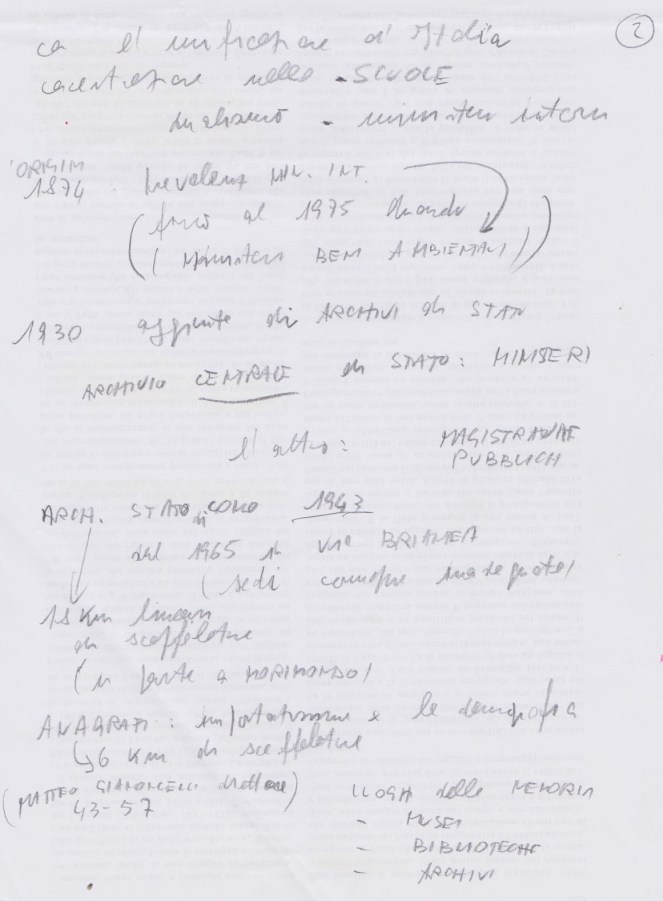 2
ca l'unificazione d'Italia
nelle - SCUOLE
- ministero interni
ORIGINI
1874 : prevalenza MIN. INT.
(fino al 1975 quando
(Ministero BENI AMBIENTALI))
1930 di ARCHIVI di STATO
ARCHIVIO CENTRALE di STATO: MINISTERI
l'altro: MAGISTRATURE
PUBBLICHE
ARCH. STATO di COMO 1943
dal 1965 in via BRIANTEA
(sedi comunque inadeguate)
18 Km lineari
di scaffalature
(in parte a MORIMONDO)
ANAGRAFI : importantissime x la demografia
↳ 6 Km di scaffalature
(MATTEO GIANONCELLI direttore)
43-57
LUOGHI della MEMORIA
- MUSEI
- BIBLIOTECHE
- ARCHIVI